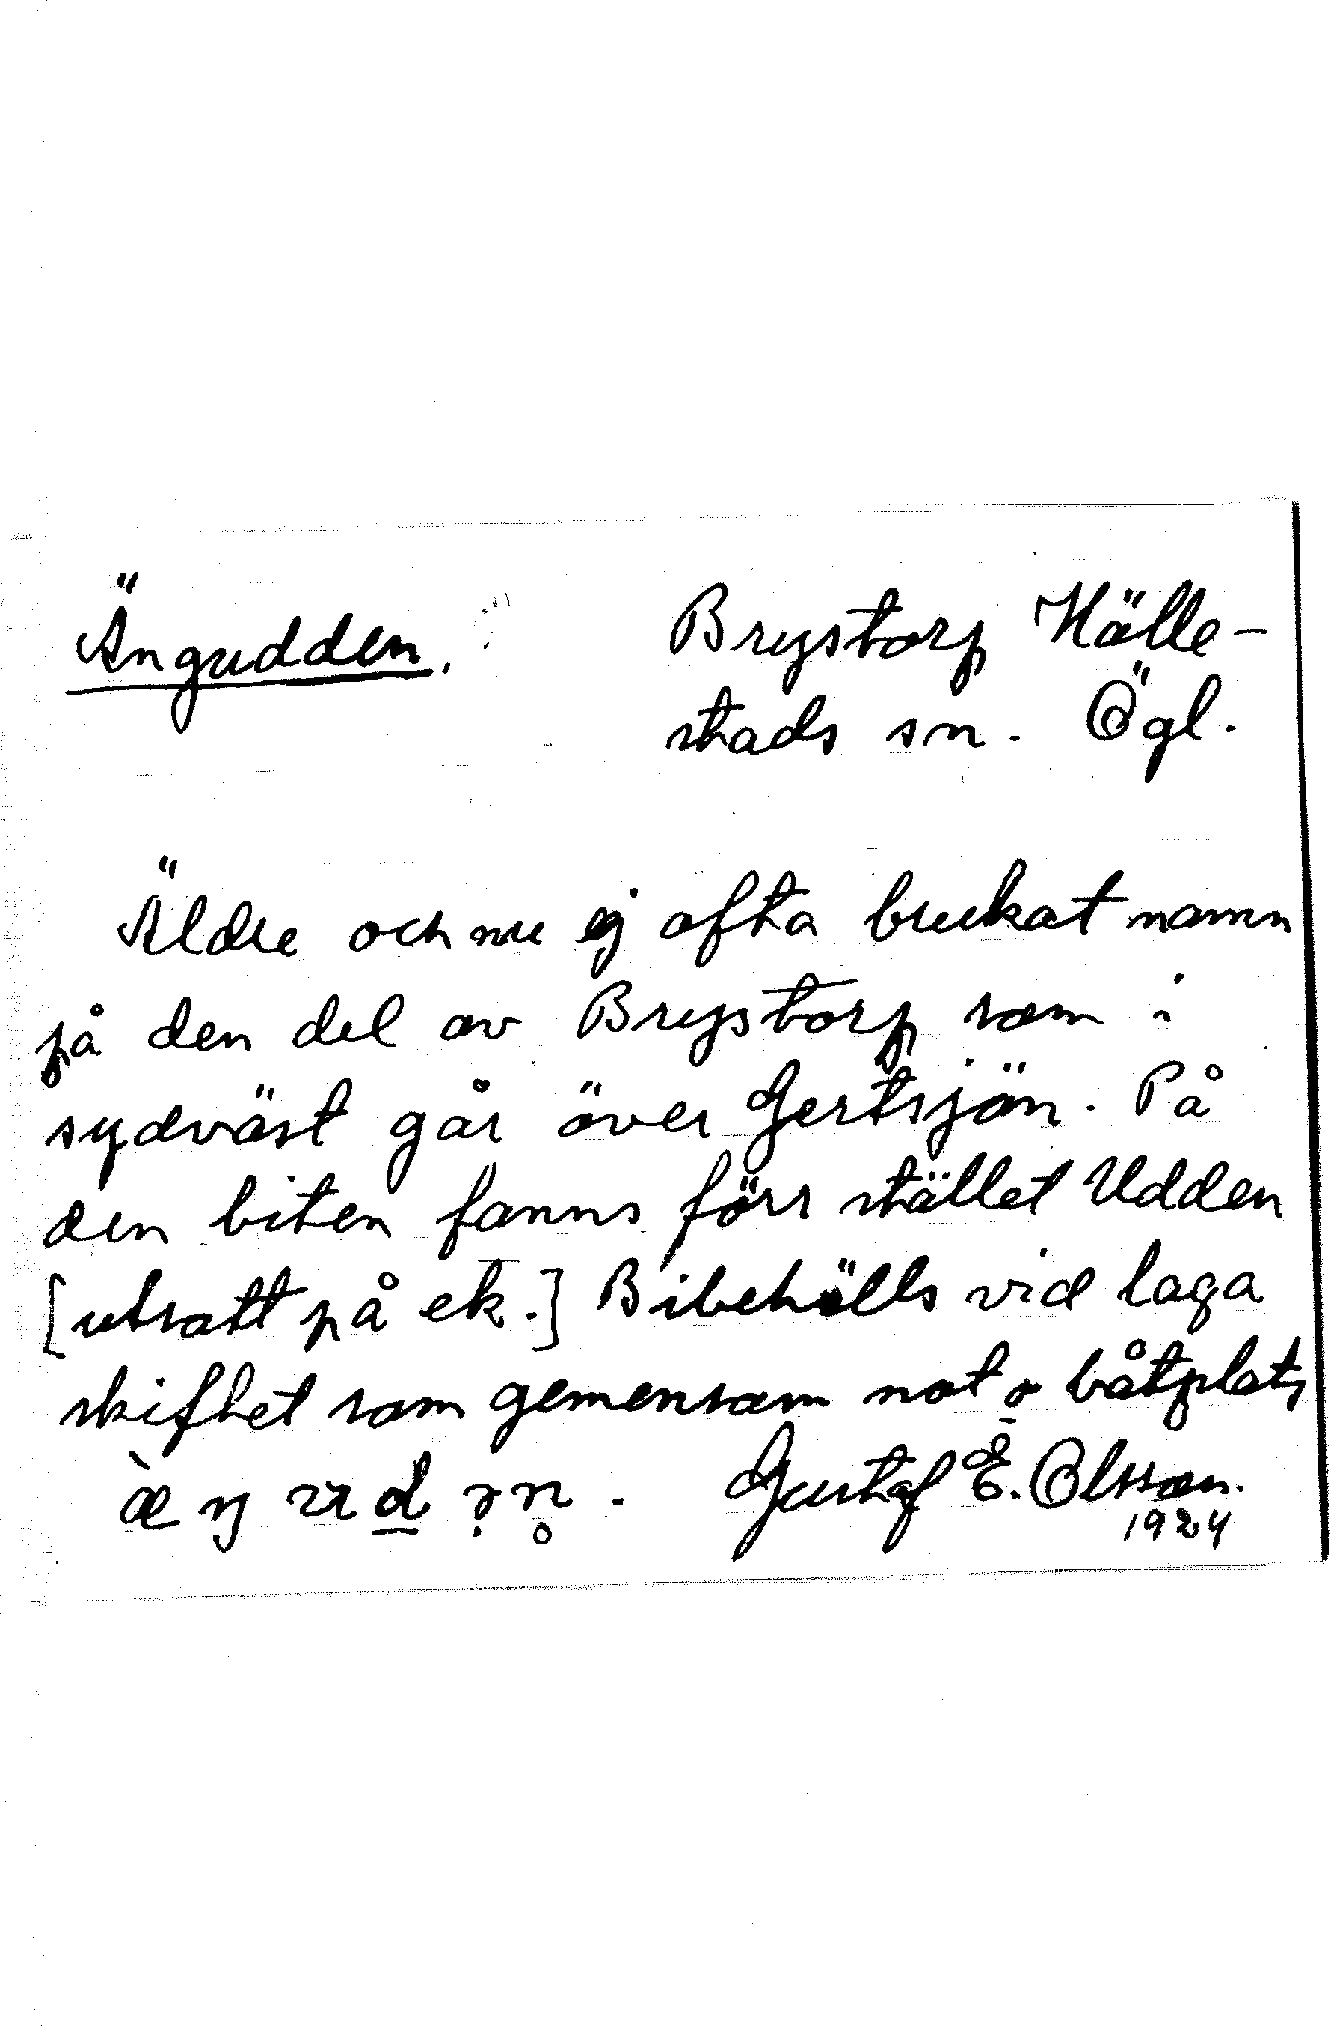 Ängudden.
Brystorp Hälle-
stads sn. Ögl.
Äldre och nu ej ofta brukat namn
på den del av Brystorp som i
sydväst går över Gertsjön. På
den biten fanns förr stället Udden
[utsatt på ek.] Bibehölls vid laga
skiftet som gemensam not o båtplats
Gustaf E. Olsson.
1924